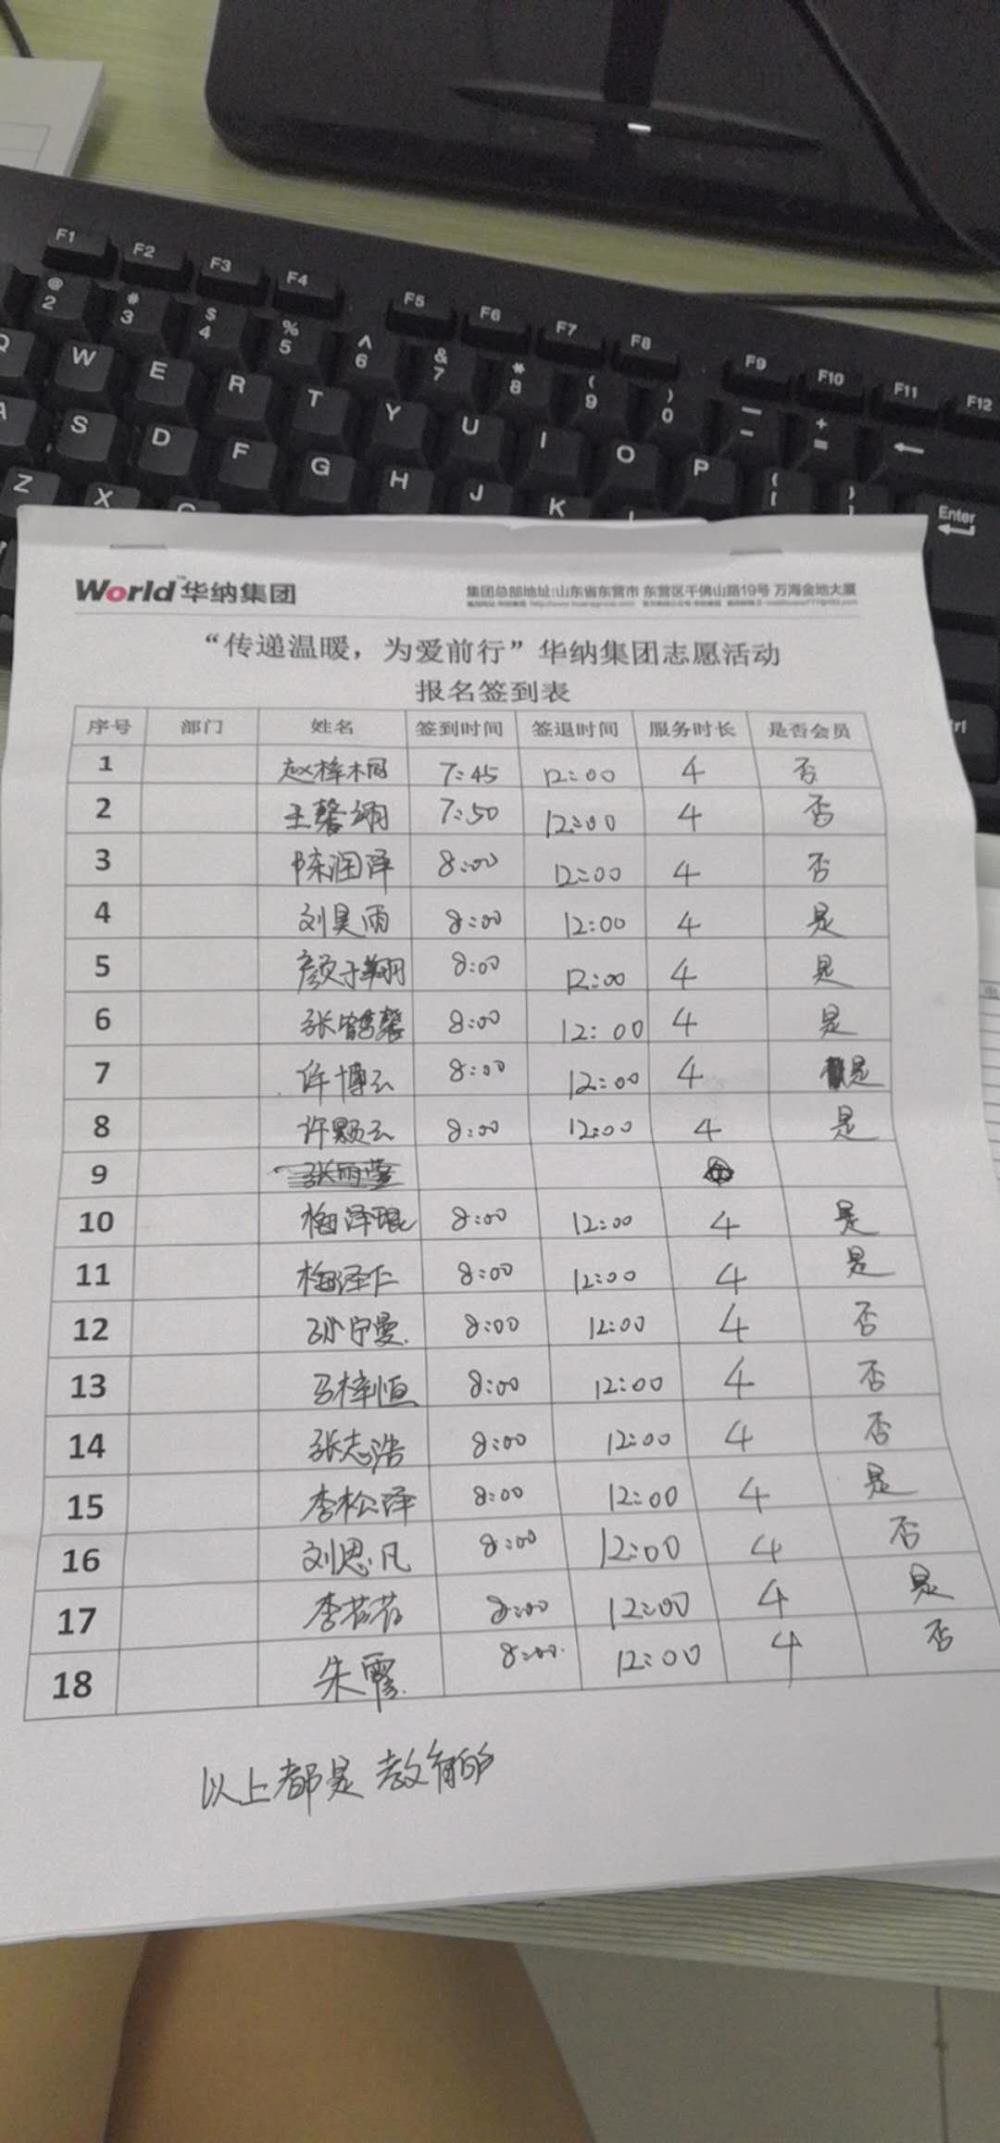 F1 F2 F3 F4 F5 F6 F7 F8 F9 F10 F11 F12
@ 2 # 3 $ 4 % 5 ^ 6 & 7 * 8 ( 9 ) 0 — - + = ←
Q W E R T Y U I O P { [ } ]
A S D F G H J K L Enter
Z X C
World 华纳集团
集团总部地址:山东省东营市 东营区千佛山路19号 万海金地大厦
“传递温暖，为爱前行”华纳集团志愿活动
报名签到表
序号 部门 姓名 签到时间 签退时间 服务时长 是否会员
1 赵梓桐 7:45 12:00 4 否
2 王馨翊 7:50 12:00 4 否
3 陈润泽 8:00 12:00 4 否
4 刘昊雨 8:00 12:00 4 是
5 颜子翔 8:00 12:00 4 是
6 张 馨 8:00 12:00 4 是
7 许博云 8:00 12:00 4 是
8 许颢云 8:00 12:00 4 是
9 张雨莹
10 梅泽琨 8:00 12:00 4 是
11 梅泽仁 8:00 12:00 4 是
12 孙宁曼 8:00 12:00 4 否
13 马梓恒 8:00 12:00 4 否
14 张志浩 8:00 12:00 4 否
15 李松泽 8:00 12:00 4 是
16 刘思凡 8:00 12:00 4 否
17 李茹 8:00 12:00 4 是
18 朱 8:00 12:00 4 否
以上都是教育的